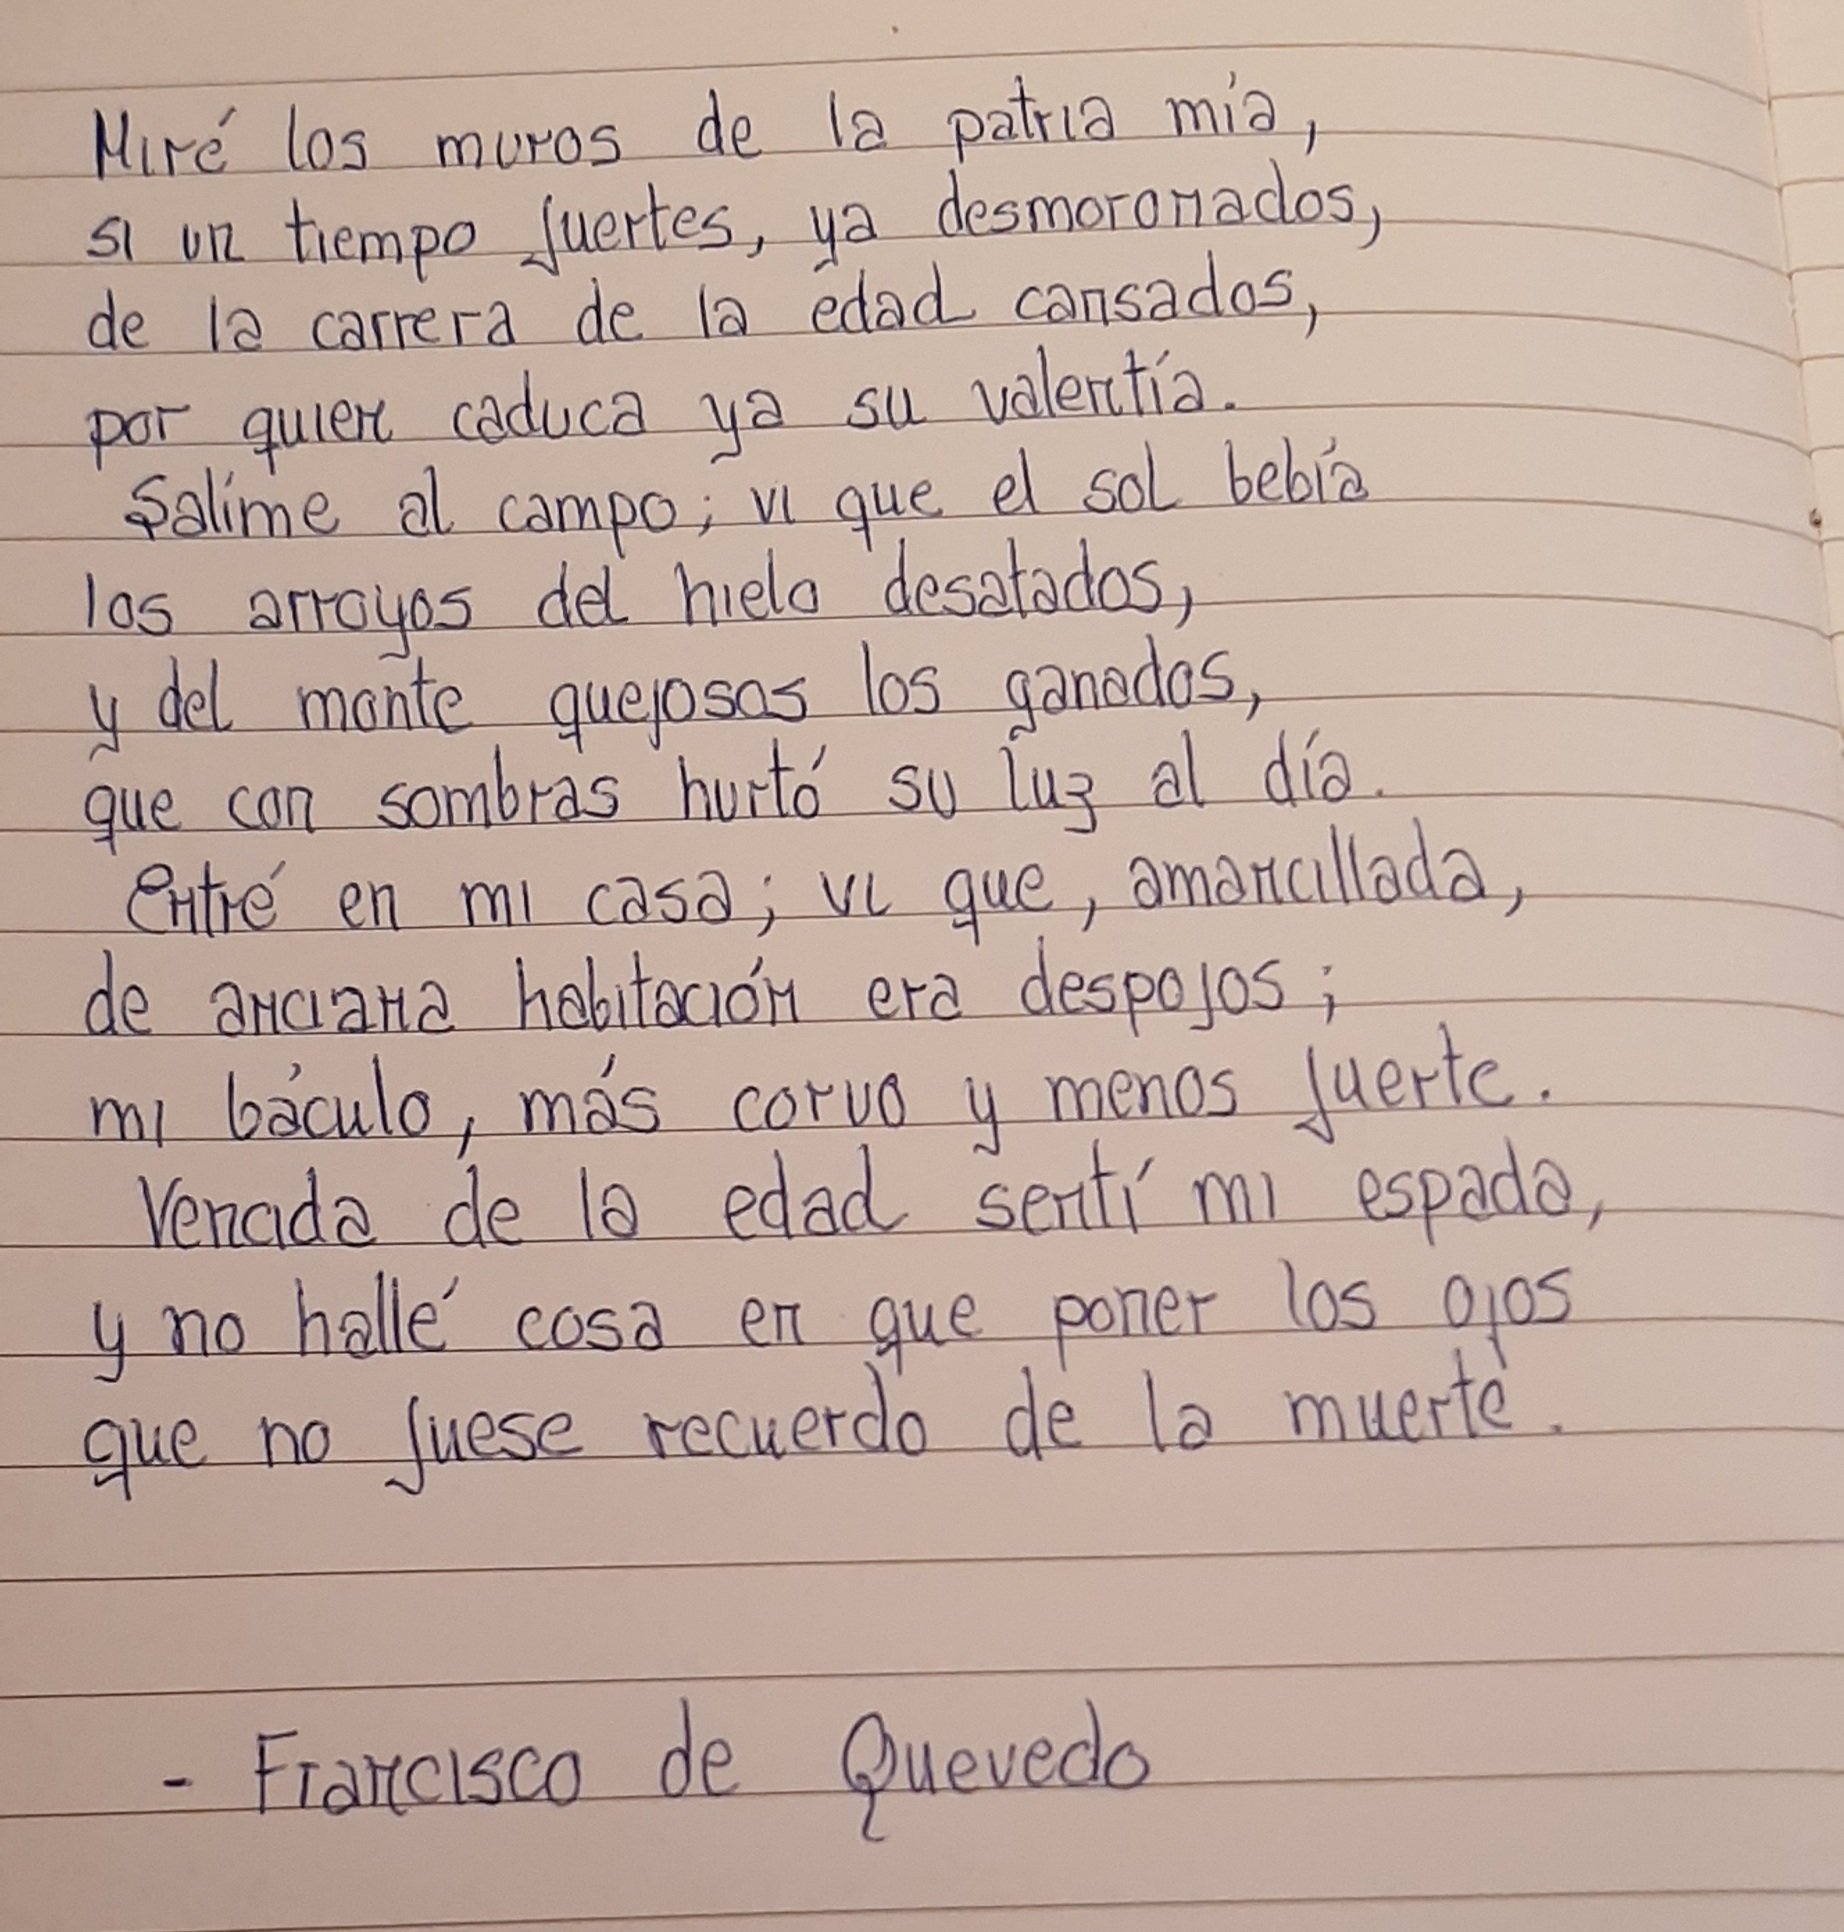 Miré los muros de la patria mía,
si un tiempo fuertes, ya desmoronados,
de la carrera de la edad cansados,
por quien caduca ya su valentía.
Salime al campo; vi que el sol bebía
los arroyos del hielo desatados,
y del monte quejosos los ganados,
que con sombras hurtó su luz al día.
Entré en mi casa; vi que, amancillada,
de anciana habitación era despojos;
mi báculo, más corvo y menos fuerte.
Vencida de la edad sentí mi espada,
y no hallé cosa en que poner los ojos
que no fuese recuerdo de la muerte.
- Francisco de Quevedo